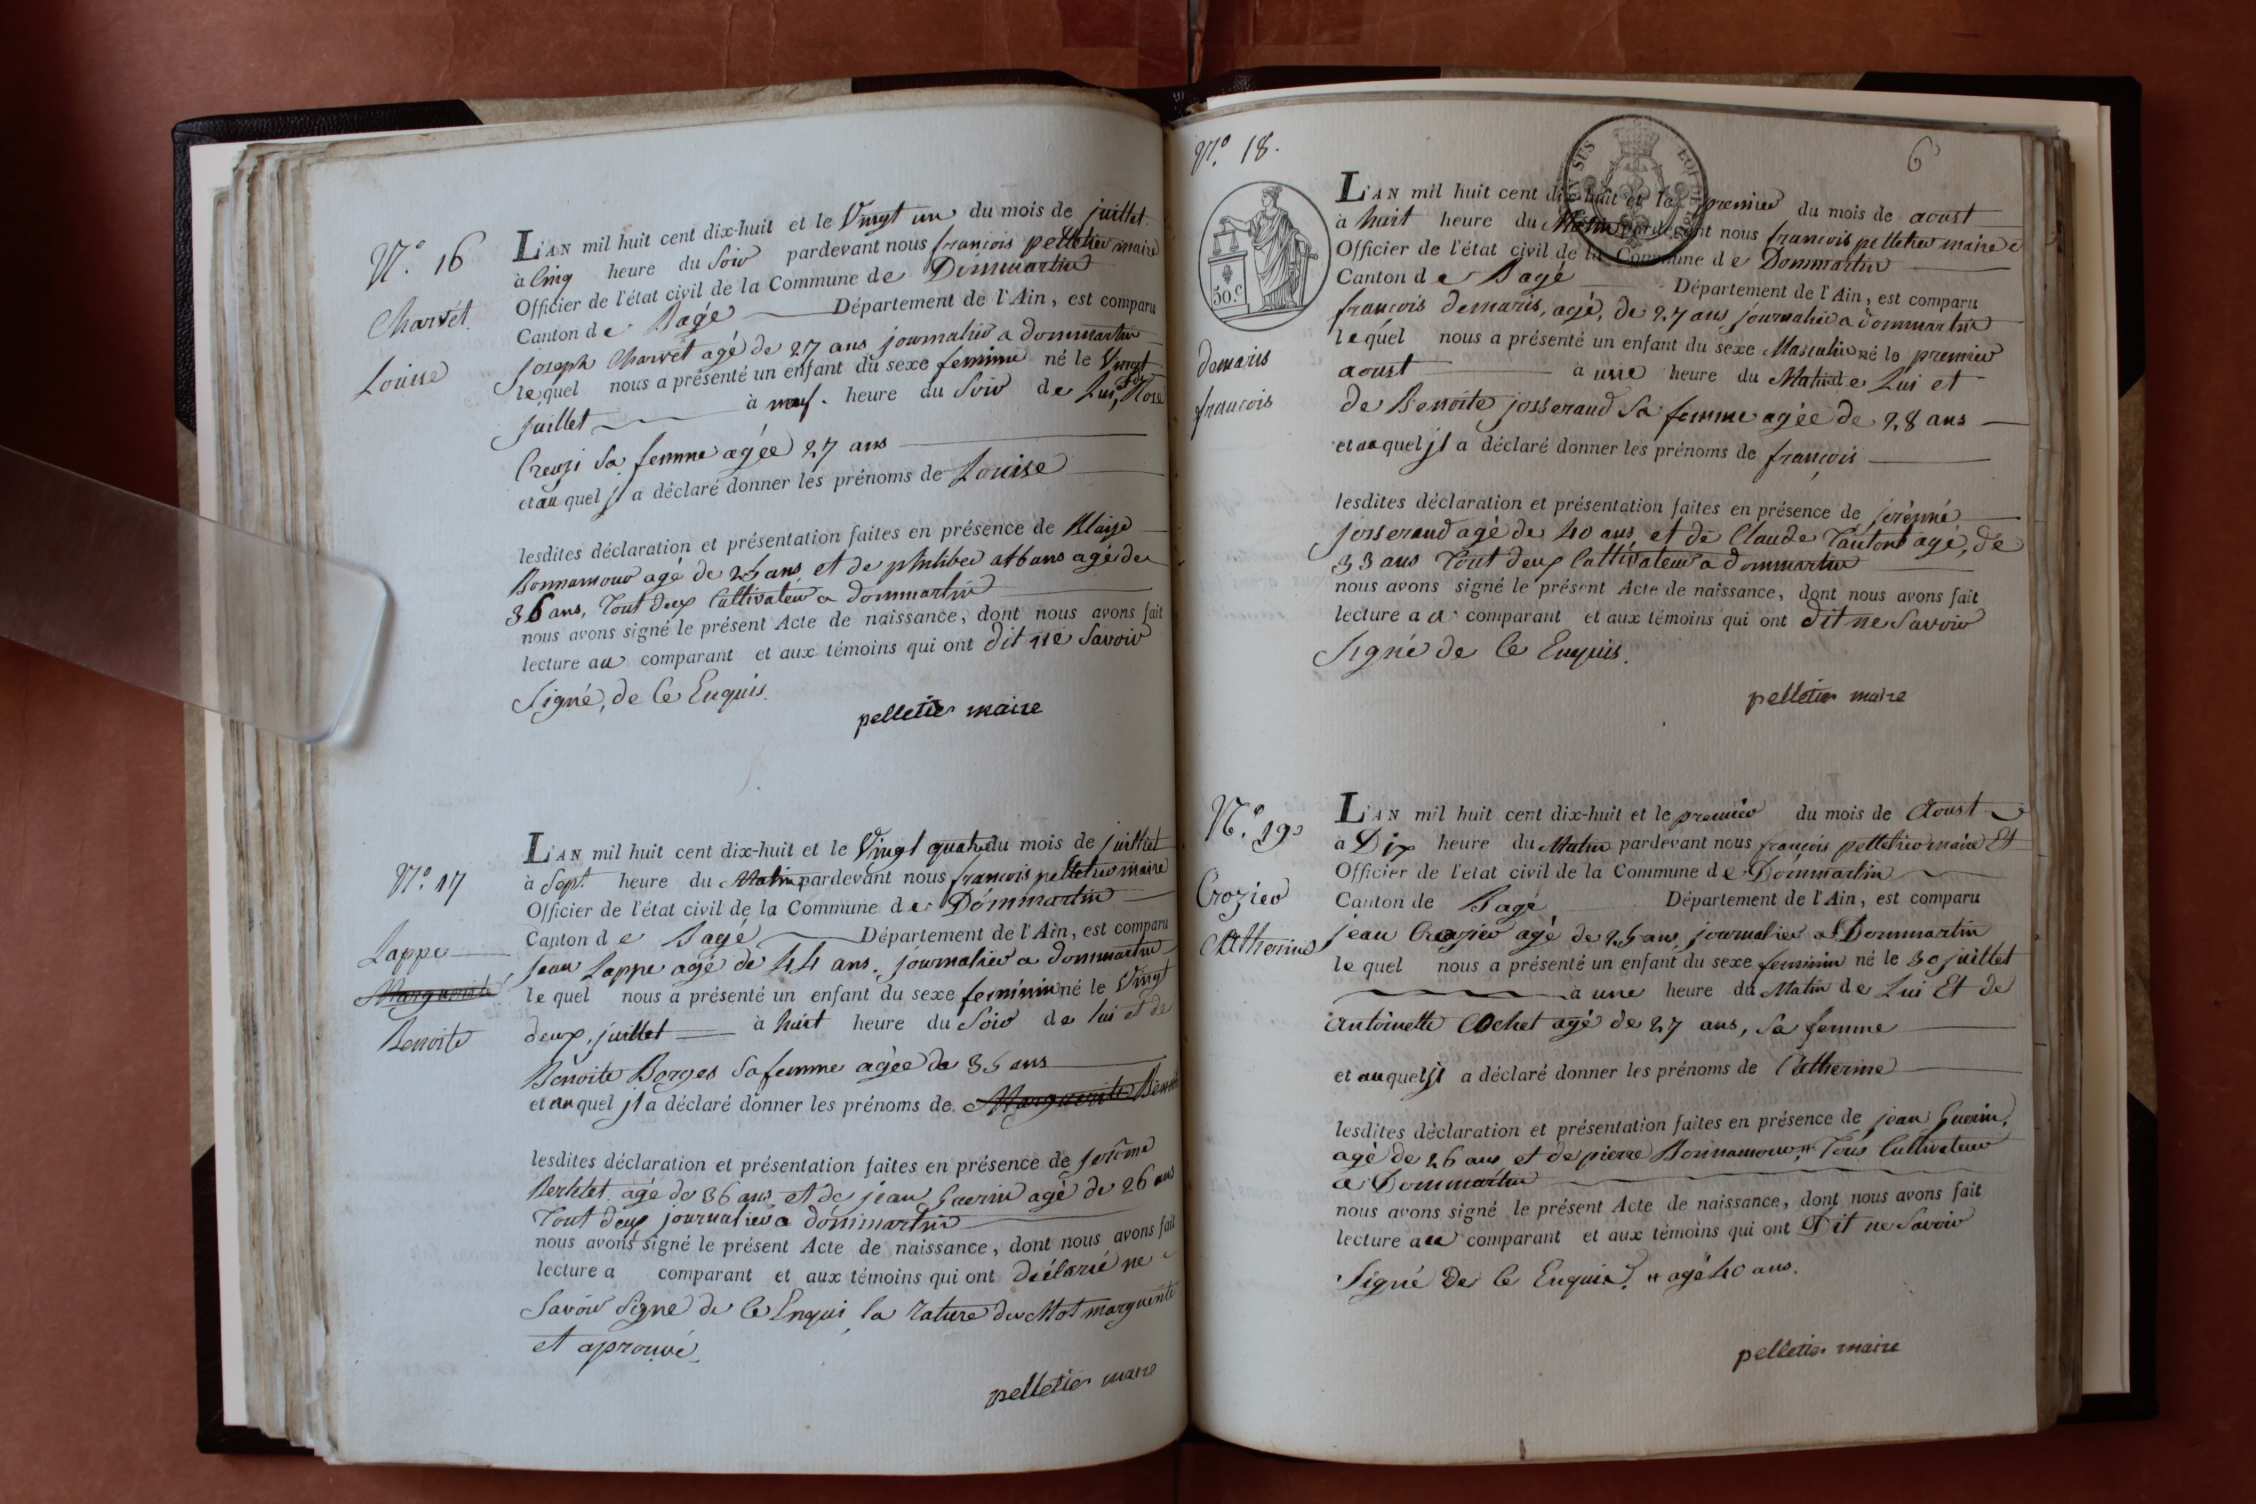 N.° 16
Charvet
Louise
L'AN mil huit cent dix-huit et le Vingt un du mois de juillet
à Cinq heure du Soir pardevant nous françois pelletier maire
Officier de l'état civil de la Commune de Dommartin
Canton de Bagé Département de l'Ain, est comparu
Joseph Charvet agé de 27 ans journalier a dommartin
lequel nous a présenté un enfant du sexe feminin né le Vingt
juillet à neuf heure du Soir de Lui, Rose
sa femme agée 27 ans
et au quel jl a déclaré donner les prénoms de Louise
lesdites déclaration et présentation faites en présence de Blaise
Bonnamour agé de ans et de philiber agé de
36 ans, Tout deux Cultivateur a dommartin
nous avons signé le présent Acte de naissance, dont nous avons fait
lecture au comparant et aux témoins qui ont dit ne Savoir
Signé, de Ce Enquis.
pelletier maire
N.° 17
Lappe
Marguerite
Benoite
L'AN mil huit cent dix-huit et le Vingt quatre du mois de juillet
à Sept heure du Matin pardevant nous francois pelletier maire
Officier de l'état civil de la Commune de Dommartin
Canton de Bagé Département de l'Ain, est comparu
Jean Lappe agé de 44 ans, journalier a dommartin
lequel nous a présenté un enfant du sexe feminin né le Vingt
deux juillet à huit heure du Soir de lui et de
Benoite Borges Sa femme agée de 35 ans
et au quel jl a déclaré donner les prénoms de Marguerite Benoite
lesdites déclaration et présentation faites en présence de jerôme
Berthlet agé de 36 ans et de jean Guerin agé de 26 ans
Tout deux journalier a dommartin
nous avons signé le présent Acte de naissance, dont nous avons fait
lecture a comparant et aux témoins qui ont déclaré ne
Savoir Signe de Ce Enqui, la rature du Mot marguerite
et aprouvé
pelletier maire
N.° 18.
6
EQUIPE
50.c
demaris
francois
L'AN mil huit cent dix-huit et le premier du mois de aoust
à huit heure du Matin pardevant nous francois pelletier maire e
Officier de l'état civil de la Commune de Dommartin
Canton de Bagé Département de l'Ain, est comparu
françois demaris, agé, de 27 ans journalier a dommartin
lequel nous a présenté un enfant du sexe Masculin né le premier
aoust à une heure du Matin de Lui et
de Benoite josserand Sa femme agée de 28 ans
et au quel jl a déclaré donner les prénoms de françois
lesdites déclaration et présentation faites en présence de
josserand agé de 40 ans et de Claude agé, de
33 ans Tout deux Cultivateur a dommartin
nous avons signé le présent Acte de naissance, dont nous avons fait
lecture a comparant et aux témoins qui ont dit ne Savoir
Signé de Ce Enquis.
pelletier maire
N.° 19
Crozier
Catherine
L'AN mil huit cent dix-huit et le premier du mois de Aoust
à Dix heure du Matin pardevant nous françois pelletier maire Et
Officier de l'état civil de la Commune de Dommartin
Canton de Bagé Département de l'Ain, est comparu
jean Crozier agé de 25 ans, journalier a Dommartin
lequel nous a présenté un enfant du sexe feminin né le 30 juillet
à une heure du Matin de Lui Et de
Antoinette Cochet agé de 27 ans, Sa femme
et au quel jl a déclaré donner les prénoms de Catherine
lesdites déclaration et présentation faites en présence de jean Guerin,
agé de 26 ans et de pierre Bonnamour, # Tous Cultivateur
a Dommartin
nous avons signé le présent Acte de naissance, dont nous avons fait
lecture au comparant et aux témoins qui ont Dit ne Savoir
Signé De Ce Enquis. # agé 40 ans.
pelletier maire